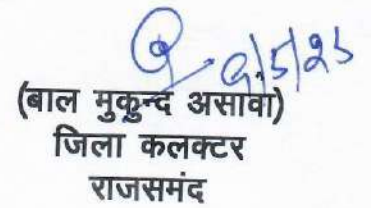 9/5/25
(बाल मुकुन्द असावा)
जिला कलक्टर
राजसमंद